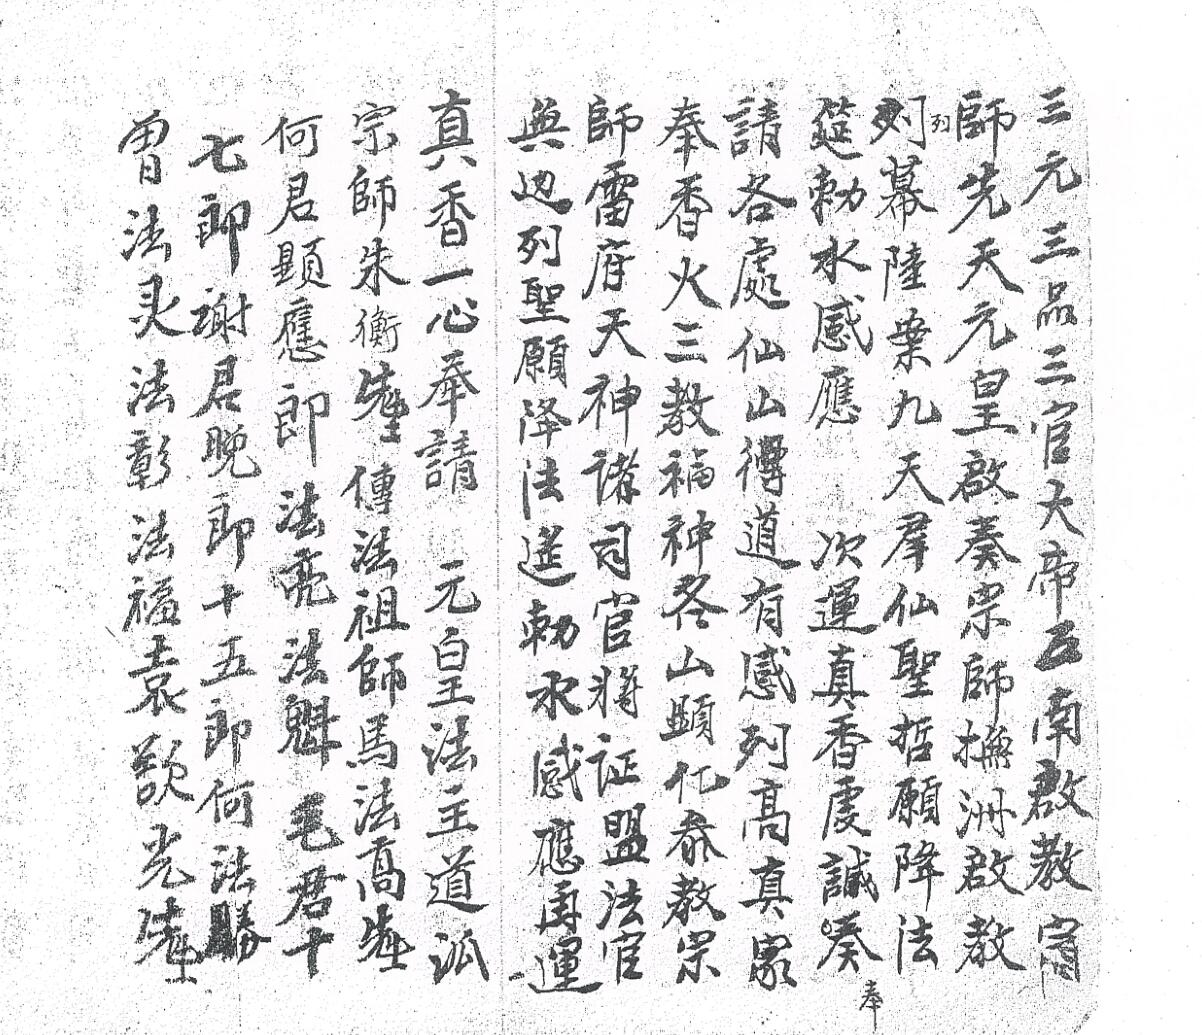 三元三品三官大帝五南啟教宗
師先天元皇啟奏宗師撫洲啟教
列列幕陸葉九天羣仙聖哲願降法
筵勅水感應　次運真香虔誠奏奉
請各處仙山得道有感列高真眾
奉香火三教福神各山顯化叅教宗
師雷府天神諸司官將证盟法官
無边列聖願降法筵勅水感應再運
真香一心奉請　元皇法主道派
宗師朱衡先生傳法祖師馬法高先生
何君顯應郎法亮法魁毛君十
七郎謝君晚郎十五郎何法勝
曾法灵法彰法福袁歆光先生